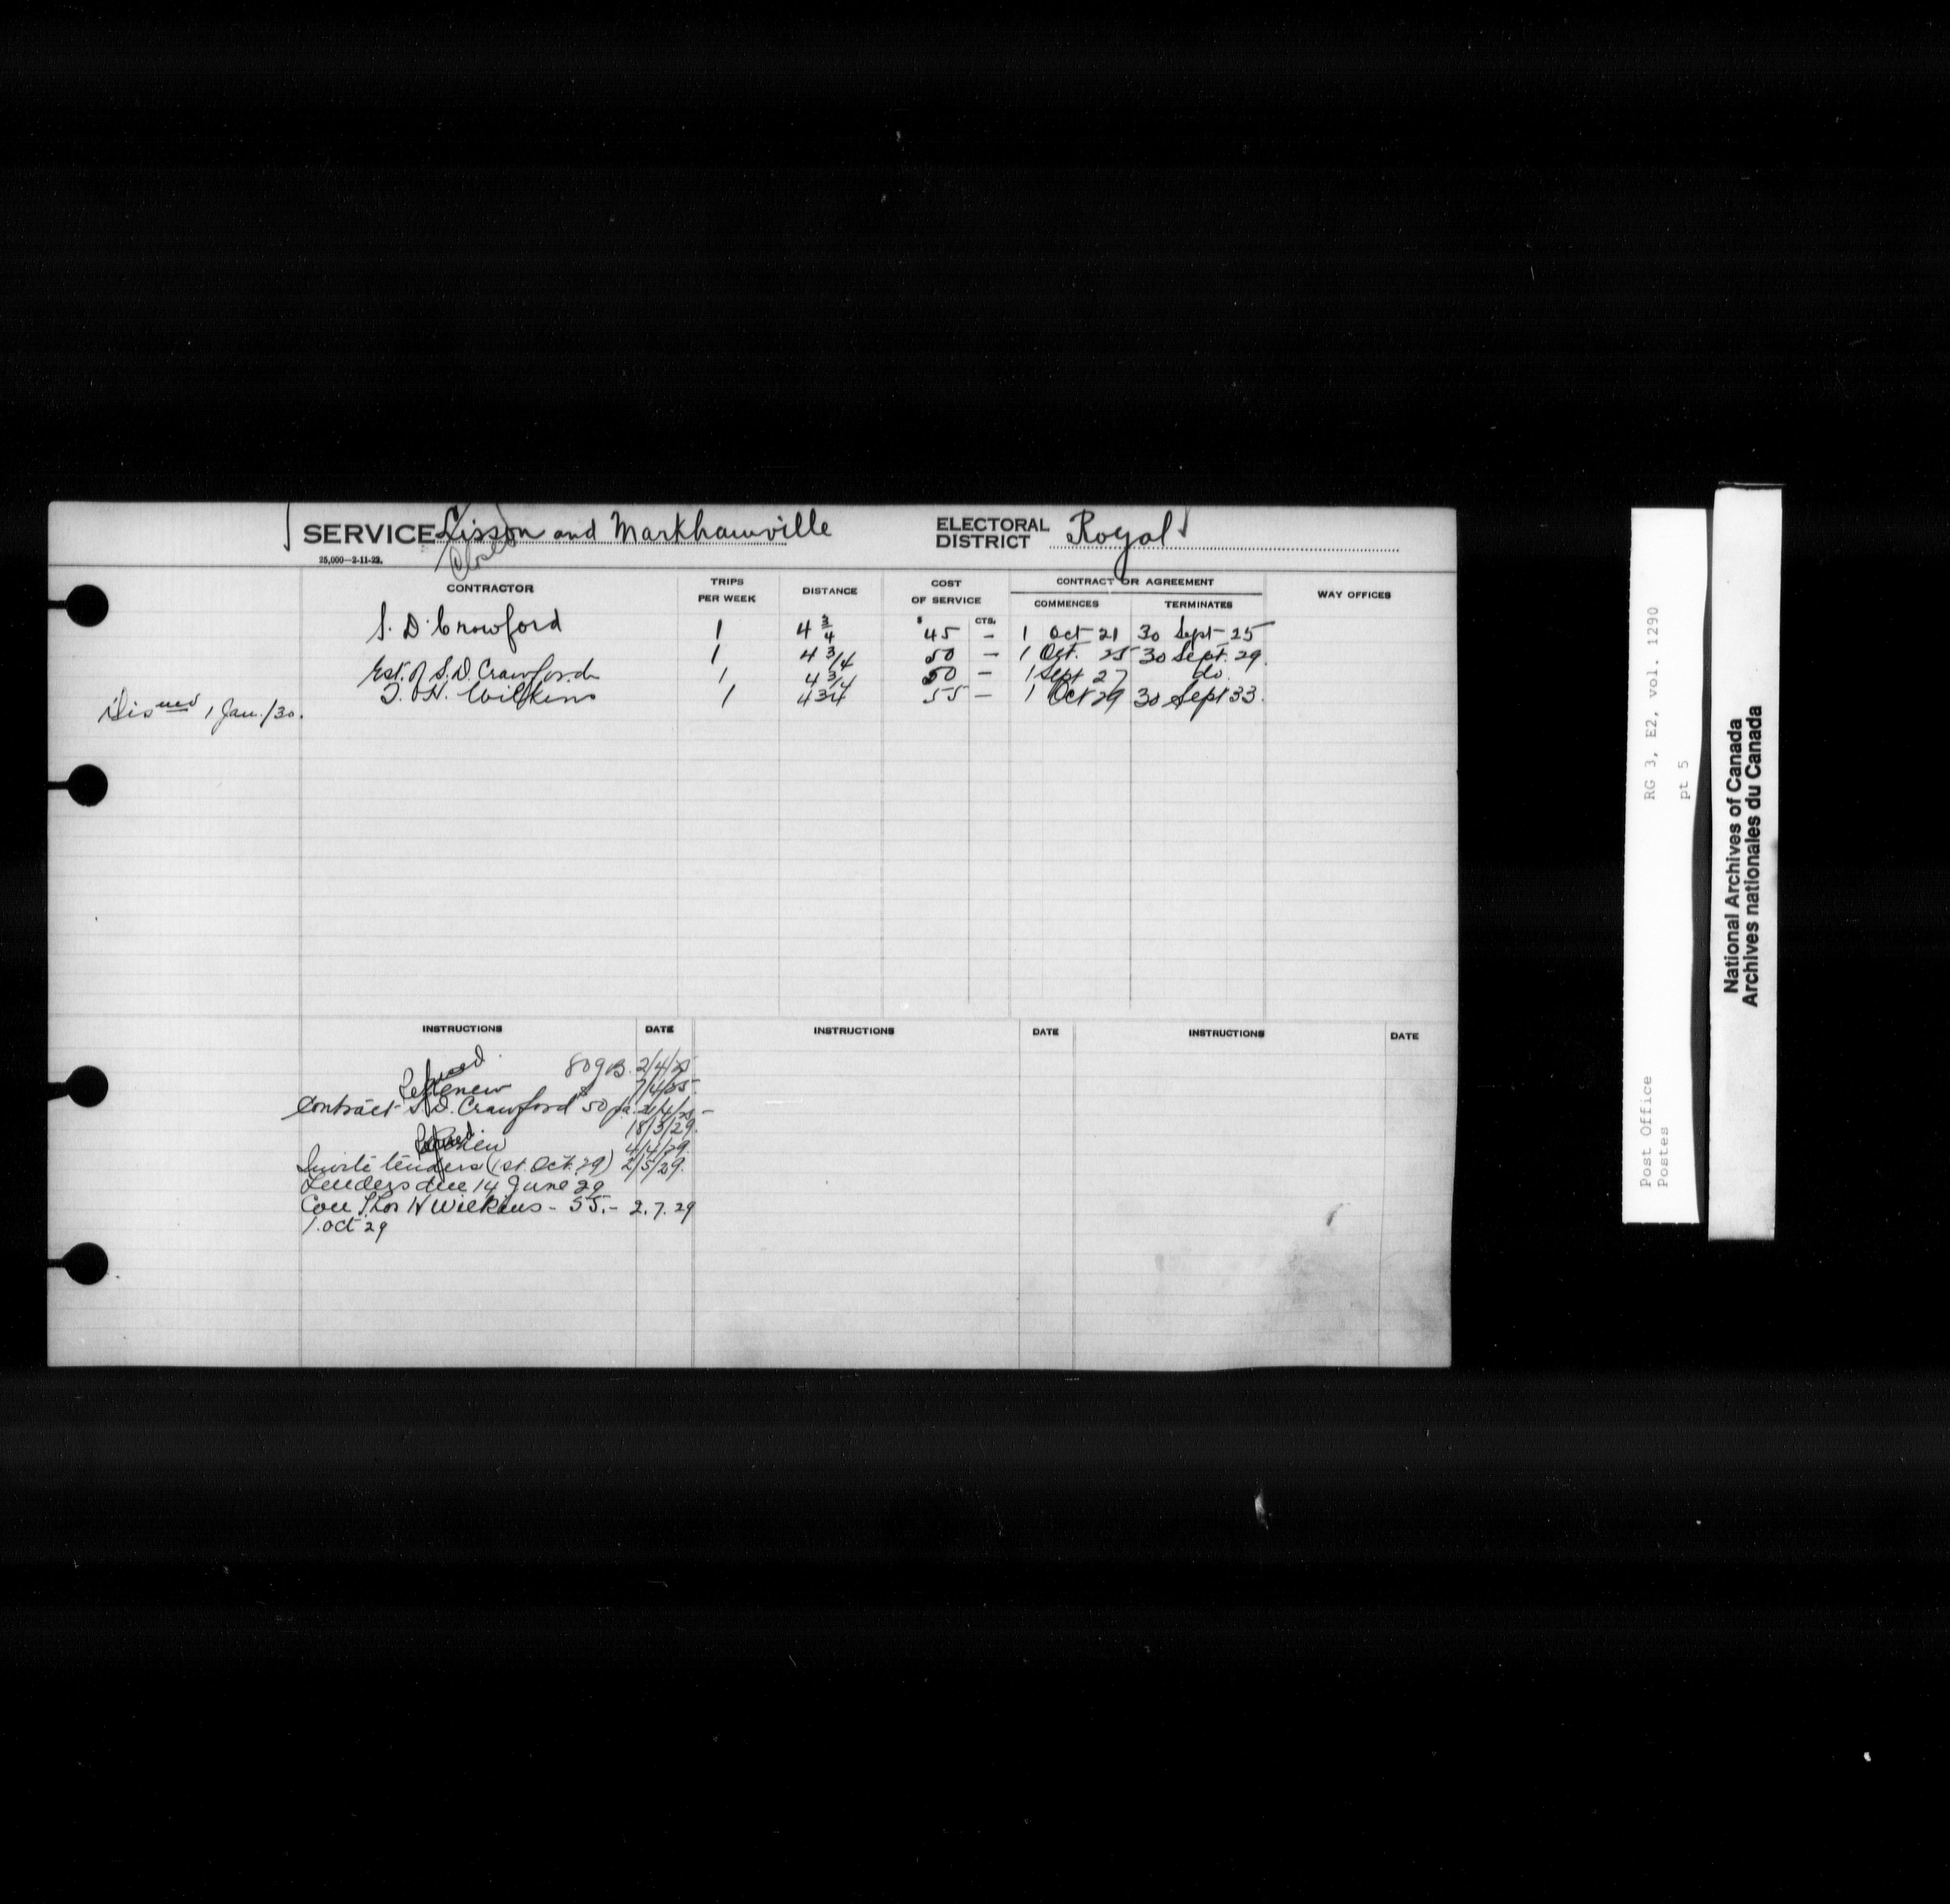 SERVICE Lisson and Markhamville ELECTORAL DISTRICT Royal
25,000—2-11-22. Closed
CONTRACTOR TRIPS PER WEEK DISTANCE COST OF SERVICE CONTRACT OR AGREEMENT COMMENCES TERMINATES WAY OFFICES
$ CTS.
S. D. Crawford 1 4 3/4 45 — 1 Oct 21 30 Sept 25
1 4 3/4 50 — 1 Oct. 25 30 Sept. 29.
Est. of S.D. Crawford 1 4 3/4 50 — 1 Sept 27 do.
T. H. Wilkins 1 4 3/4 55 — 1 Oct 29 30 Sept 33.
Disned 1 Jan./30.
INSTRUCTIONS DATE INSTRUCTIONS DATE INSTRUCTIONS DATE
809B. 2/4/25
Renew 7/4/25
Contract S.D. Crawford $50 pa. 21/4/25
18/3/29.
4/4/29.
Invite tenders (1st. Oct. 29) 2/5/29.
Tenders due 14 June 29
Con Thos H Wilkins - 55.- 2.7.29
1. Oct 29
Post Office RG 3, E2, vol. 1290
Postes pt 5
National Archives of Canada
Archives nationales du Canada